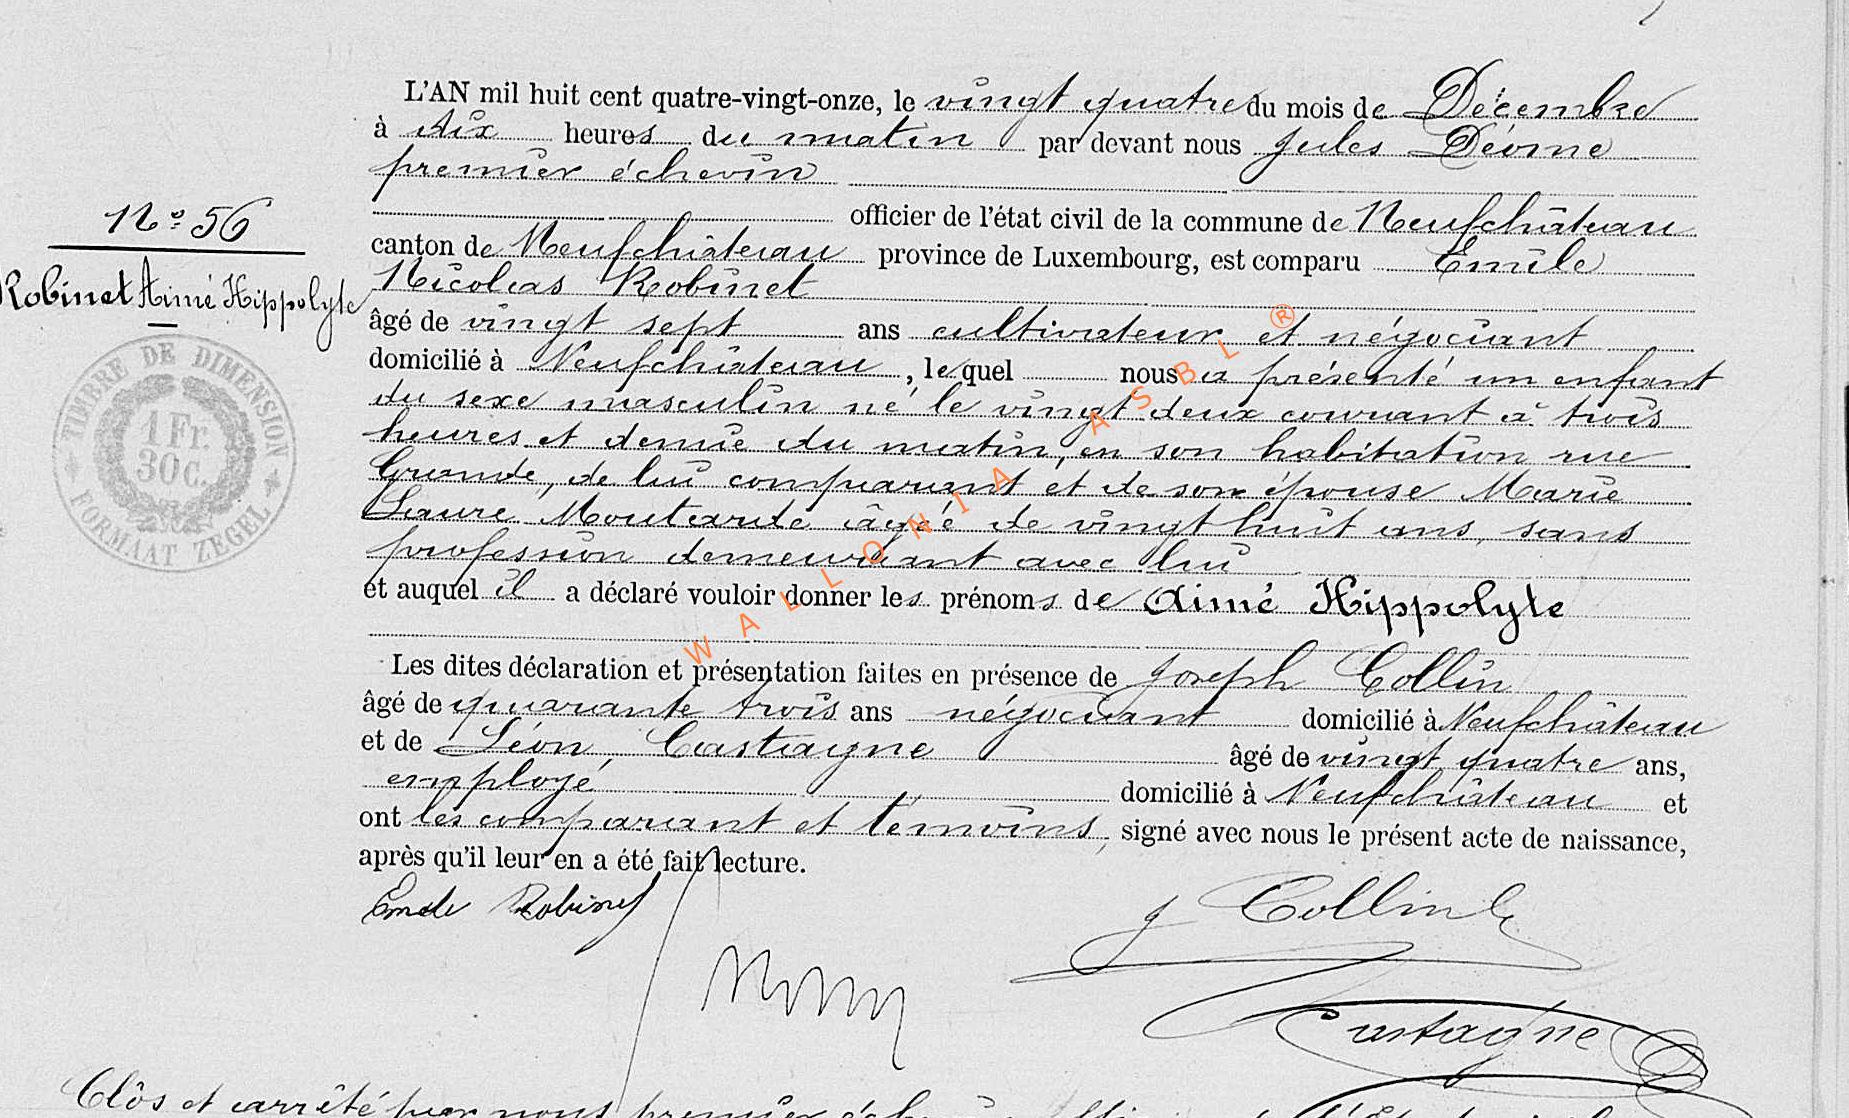 L'AN mil huit cent quatre-vingt-onze, le vingt quatre du mois de Décembre
à dix heures du matin par devant nous Jules Déome
premier échevin
officier de l'état civil de la commune de Neufchâteau
canton de Neufchâteau province de Luxembourg, est comparu Emile
Nicolas Robinet
âgé de vingt sept ans cultivateur et négociant
domicilié à Neufchâteau, lequel nous a présenté un enfant
du sexe masculin né le vingt deux courant à trois
heures et demie du matin, en son habitation rue
Grande, de lui comparant et de son épouse Marie
Laure Moutarde âgée de vingt huit ans, sans
profession demeurant avec lui
et auquel il a déclaré vouloir donner les prénoms de Aimé Hippolyte
Les dites déclaration et présentation faites en présence de Joseph Collin
âgé de quarante trois ans négociant domicilié à Neufchâteau
et de Léon Castagne âgé de vingt quatre ans,
employé domicilié à Neufchâteau et
ont les comparant et témoins, signé avec nous le présent acte de naissance,
après qu'il leur en a été fait lecture.
N° 56
Robinet Aimé Hippolyte
TIMBRE DE DIMENSION
1 Fr.
30 c.
FORMAAT ZEGEL
WALLONIA ASBL ®
Emile Robinet
J Collin
Castagne
Clôs et arrêté par nous premier